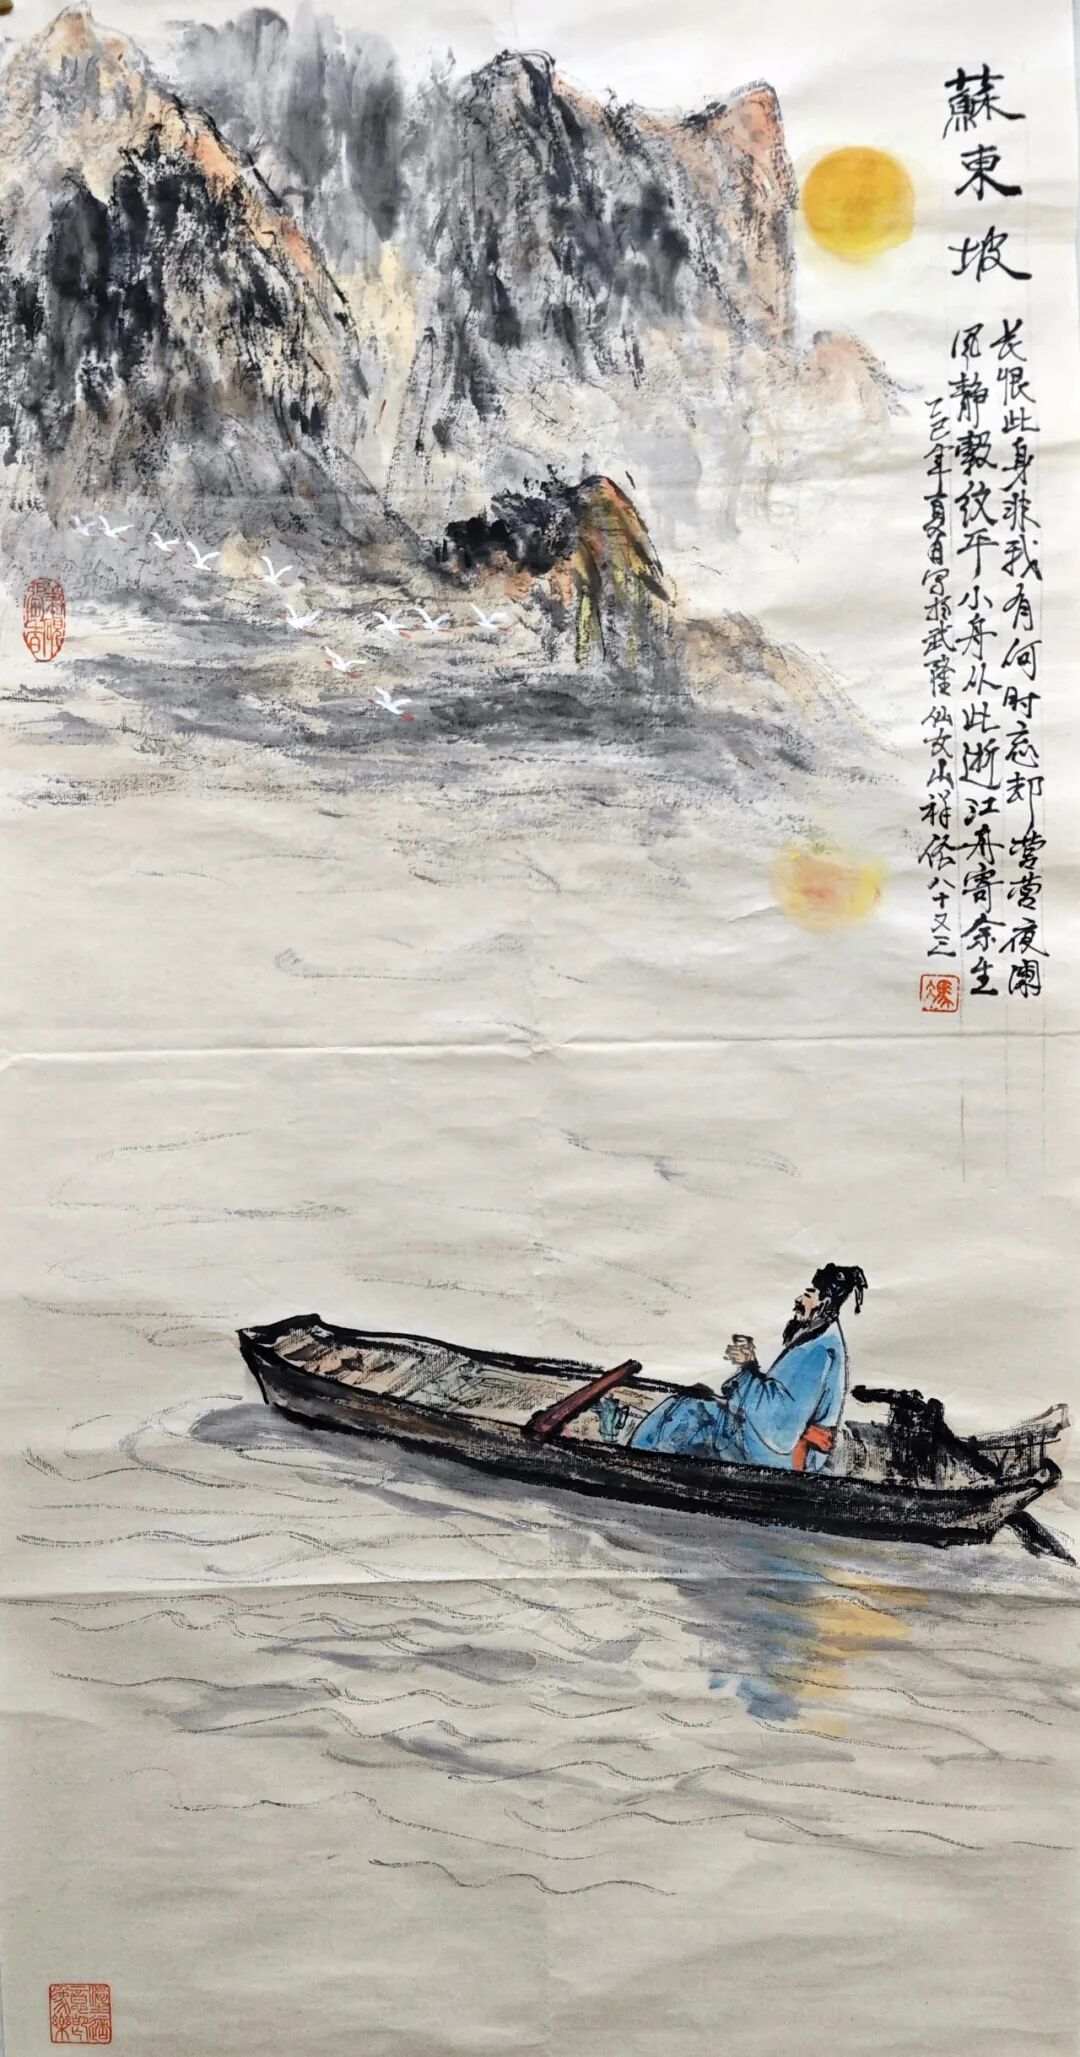 蘇東坡
长恨此身非我有何时忘却营营夜阑
风静縠纹平小舟从此逝江舟寄余生
乙巳年夏日写于武隆仙女山祥俊八十又三